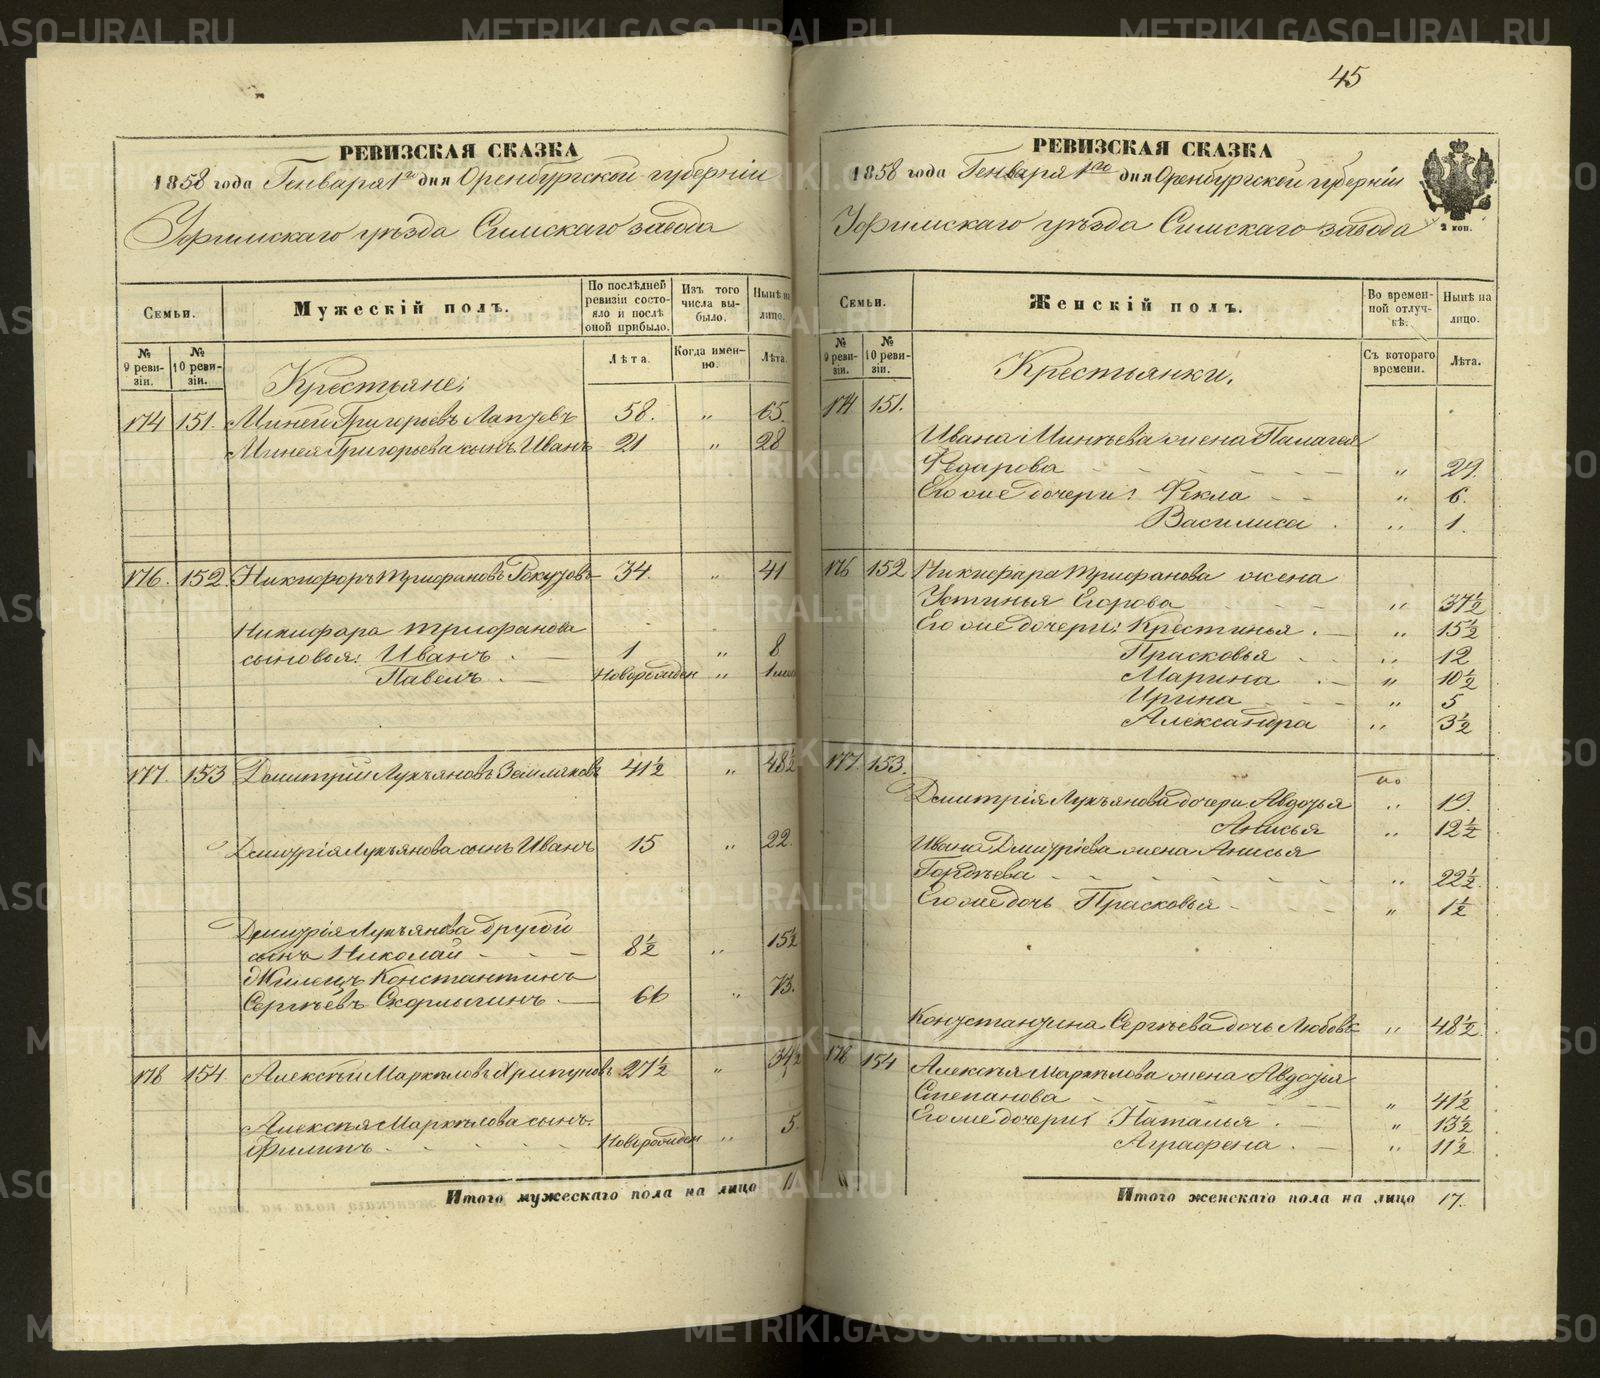 45
РЕВИЗСКАЯ СКАЗКА
1858 года Генваря 1го дня Оренбургской губерніи
Уфимскаго уѣзда Симскаго завода
Семьи.
Мужескій полъ.
По послѣдней ревизіи состояло и послѣ оной прибыло.
Изъ того числа выбыло.
Нынѣ на лицо.
№ 9 ревизіи.
№ 10 ревизіи.
Лѣта.
Когда именно.
Лѣта.
Крестьяне:
174 151. Миней Григорьевъ Лаптевъ 58. „ 65.
Минея Григорьева сынъ Иванъ 21 „ 28
176. 152. Никифоръ Трифановъ 34. „ 41
Никифара Трифанова
сыновья: Иванъ . — 1 „ 8
Павелъ . — Новорожден „
177. 153 Дмитрій Лукьяновъ Земляковъ 41½ „ 48½
Дмитрія Лукьянова сынъ Иванъ 15 „ 22.
Дмитрія Лукьянова другой
сынъ Николай - - - 8½ „ 15½
Жилецъ Константинъ
Сергѣевъ — 66 „ 73.
178 154. Алексѣй Маркѣловъ Хрипуновъ 27½ „ 34½
Алексѣя Маркѣлова сынъ
Филипъ - - - Новорожден „ 5.
Итого мужескаго пола на лицо 11
РЕВИЗСКАЯ СКАЗКА
1858 года Генваря 1го дня Оренбургской губерніи
Уфимскаго уѣзда Симскаго завода
2 коп.
Семьи.
Женскій полъ.
Во временной отлучкѣ.
Нынѣ на лицо.
№ 9 ревизіи.
№ 10 ревизіи.
Съ котораго времени.
Лѣта.
Крестьянки.
174 151.
Ивана Минѣева жена Палагея
Федарова - - - „ 29.
Его же дочери: Фекла - - „ 6.
Василиса . „ 1.
176 152 Никифара Трифанова жена
Устинья Егорова - - - „ 37½
Его же дочери: Крестинья . — „ 15½
Прасковья - - „ 12
Марина . — „ 10½
Ирина - - - „ 5
Александра „ 3½
177. 153.
Дмитрія Лукьянова дочери Авдотья „ 19.
Анисья „ 12½
Ивана Дмитріева жена Анисья
Гордѣева - - - „ 22½
Его же дочь Прасковья - - „ 1½
Константина Сергѣева дочь Любовь „ 48½
178 154 Алексѣя Маркѣлова жена Авдотья
Степанова - - - „ 41½
Его же дочери: Наталья . — „ 13½
Аграфена . — „ 11½
Итого женскаго пола на лицо 17.
METRIKI.GASO-URAL.RU